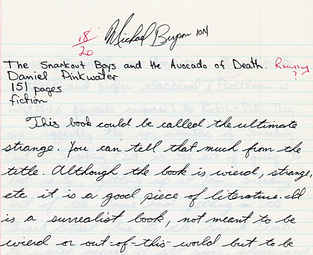 18
20
Michael Bryson 10N
The Snarkout Boys and the Avocado of Death.
Daniel Pinkwater
151 pages
fiction
This book could be called the ultimate
strange. You can tell that much from the
title. Although the book is wierd, strange,
etc it is a good piece of literature. It
is a surrealist book, not meant to be
wierd or out-of-this-world but to be